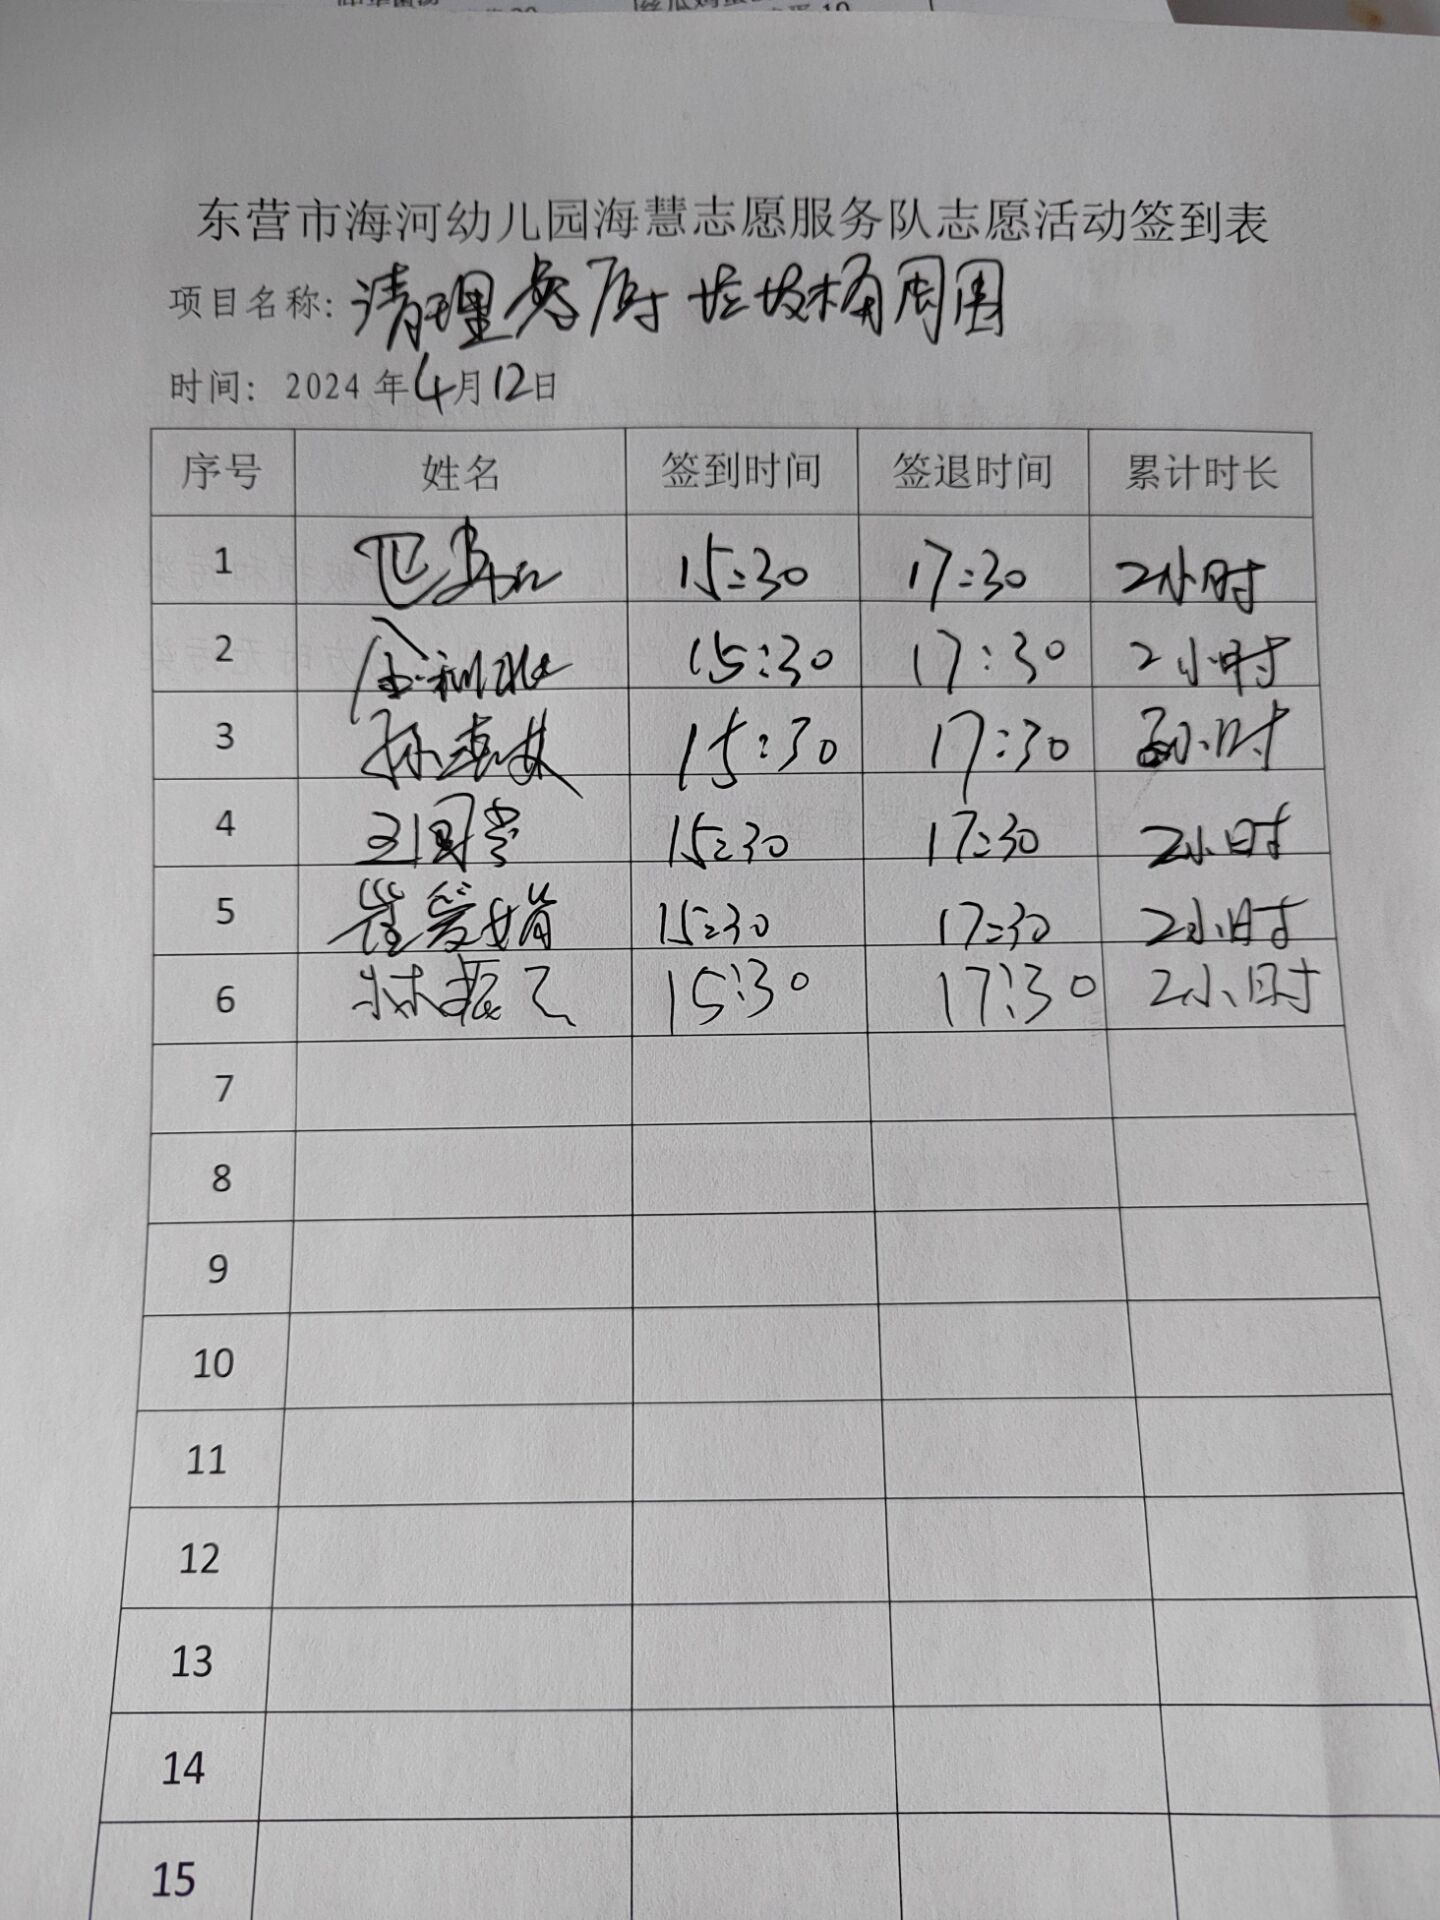 东营市海河幼儿园海慧志愿服务队志愿活动签到表
项目名称: 清理 厨 垃圾桶周围
时间: 2024 年 4 月 12 日
序号 姓名 签到时间 签退时间 累计时长
1 15:30 17:30 2小时
2 15:30 17:30 2小时
3 15:30 17:30 小时
4 15:30 17:30 2小时
5 崔爱娟 15:30 17:30 2小时
6 林振 15:30 17:30 2小时
7
8
9
10
11
12
13
14
15